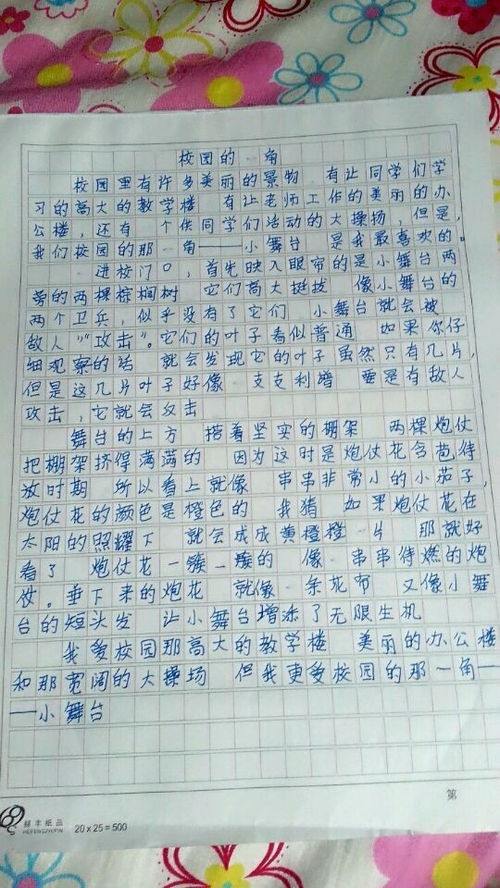 校园的一角
校园里有许多美丽的景物 有让同学们学
习的高大的教学楼 有让老师工作的美丽的办
公楼，还有 个供同学们活动的大操场，但是，
我们校园的那一角——小舞台 是我最喜欢的。
进校门口，首先映入眼帘的是小舞台两
旁的两棵棕榈树 它们高大挺拔 像小舞台的
两个卫兵，似乎没有了它们 小舞台就会被
敌人“攻击”。它们的叶子看似普通 如果你仔
细观察的话 就会发现它的叶子虽然只有几片，
但是这几片叶子好像 支支利增 要是有敌人
攻击，它就会反击
舞台的上方 搭着坚实的棚架 两棵炮仗
把棚架挤得满满的 因为这时是炮仗花含苞待
放时期 所以看上就像 串串非常小的小茄子，
炮仗花的颜色是橙色的 我猜 如果炮仗花在
太阳的照耀下 就会成成黄橙橙一片 那就好
看了 炮仗花一簇一簇的 像一串串待燃的炮
仗。垂下来的炮花 就像一条花布 又像小舞
台的短头发 让小舞台增添了无限生机
我爱校园那高大的教学楼 美丽的办公楼
和那宽阔的大操场 但我更爱校园的那一角—
—小舞台
第
20×25=500